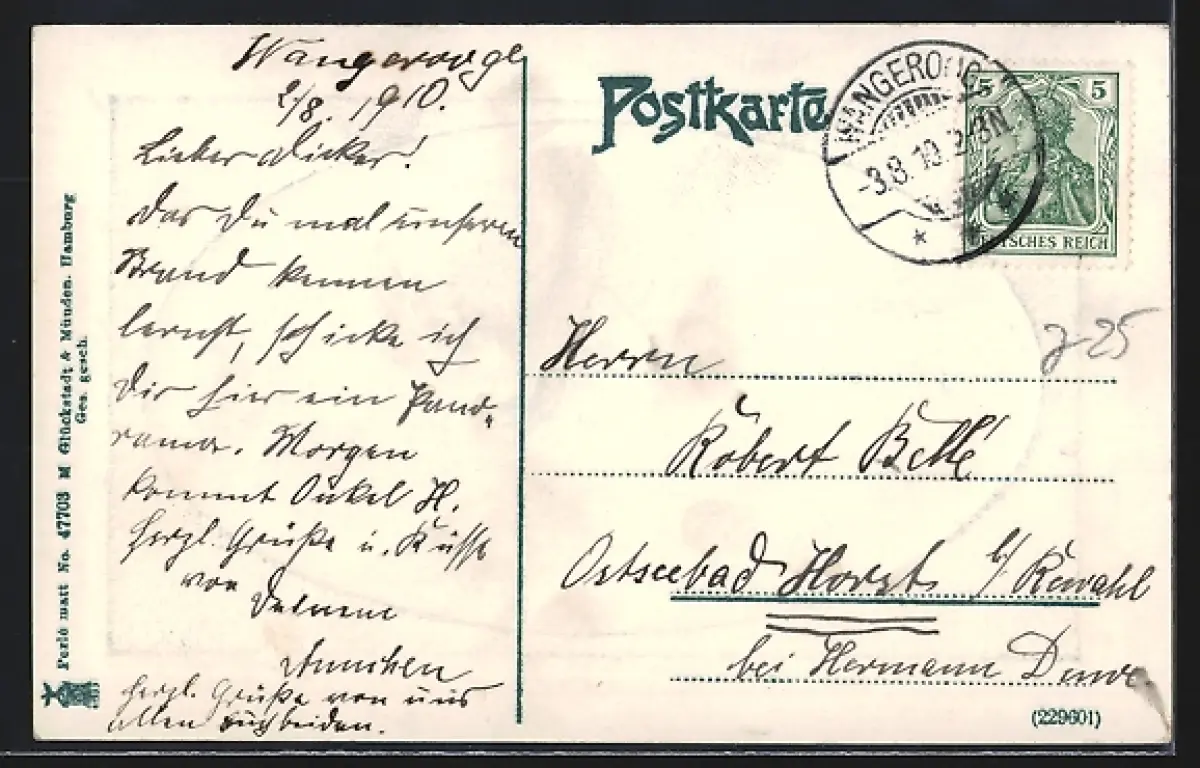 Wangerooge
2/8. 1910.
Lieber Dicker!
Das Du mal unseren
Strand kennen
lernst, schicke ich
Dir hier ein Pano-
rama. Morgen
kommt Onkel H.
Herzl. Grüße u. Küsse
von
Deinem
Annchen
Herzl. Grüße von uns
allen Euch beiden.
Postkarte
WANGEROOGE
-3.8.10. 2-3N.
5 5
DEUTSCHES REICH
Herrn
Robert
Ostseebad Horst b/ Rewahl
bei Hermann
(229601)
Perlo matt No. 47703 M Glückstadt & Münden. Hamburg
Ges. gesch.